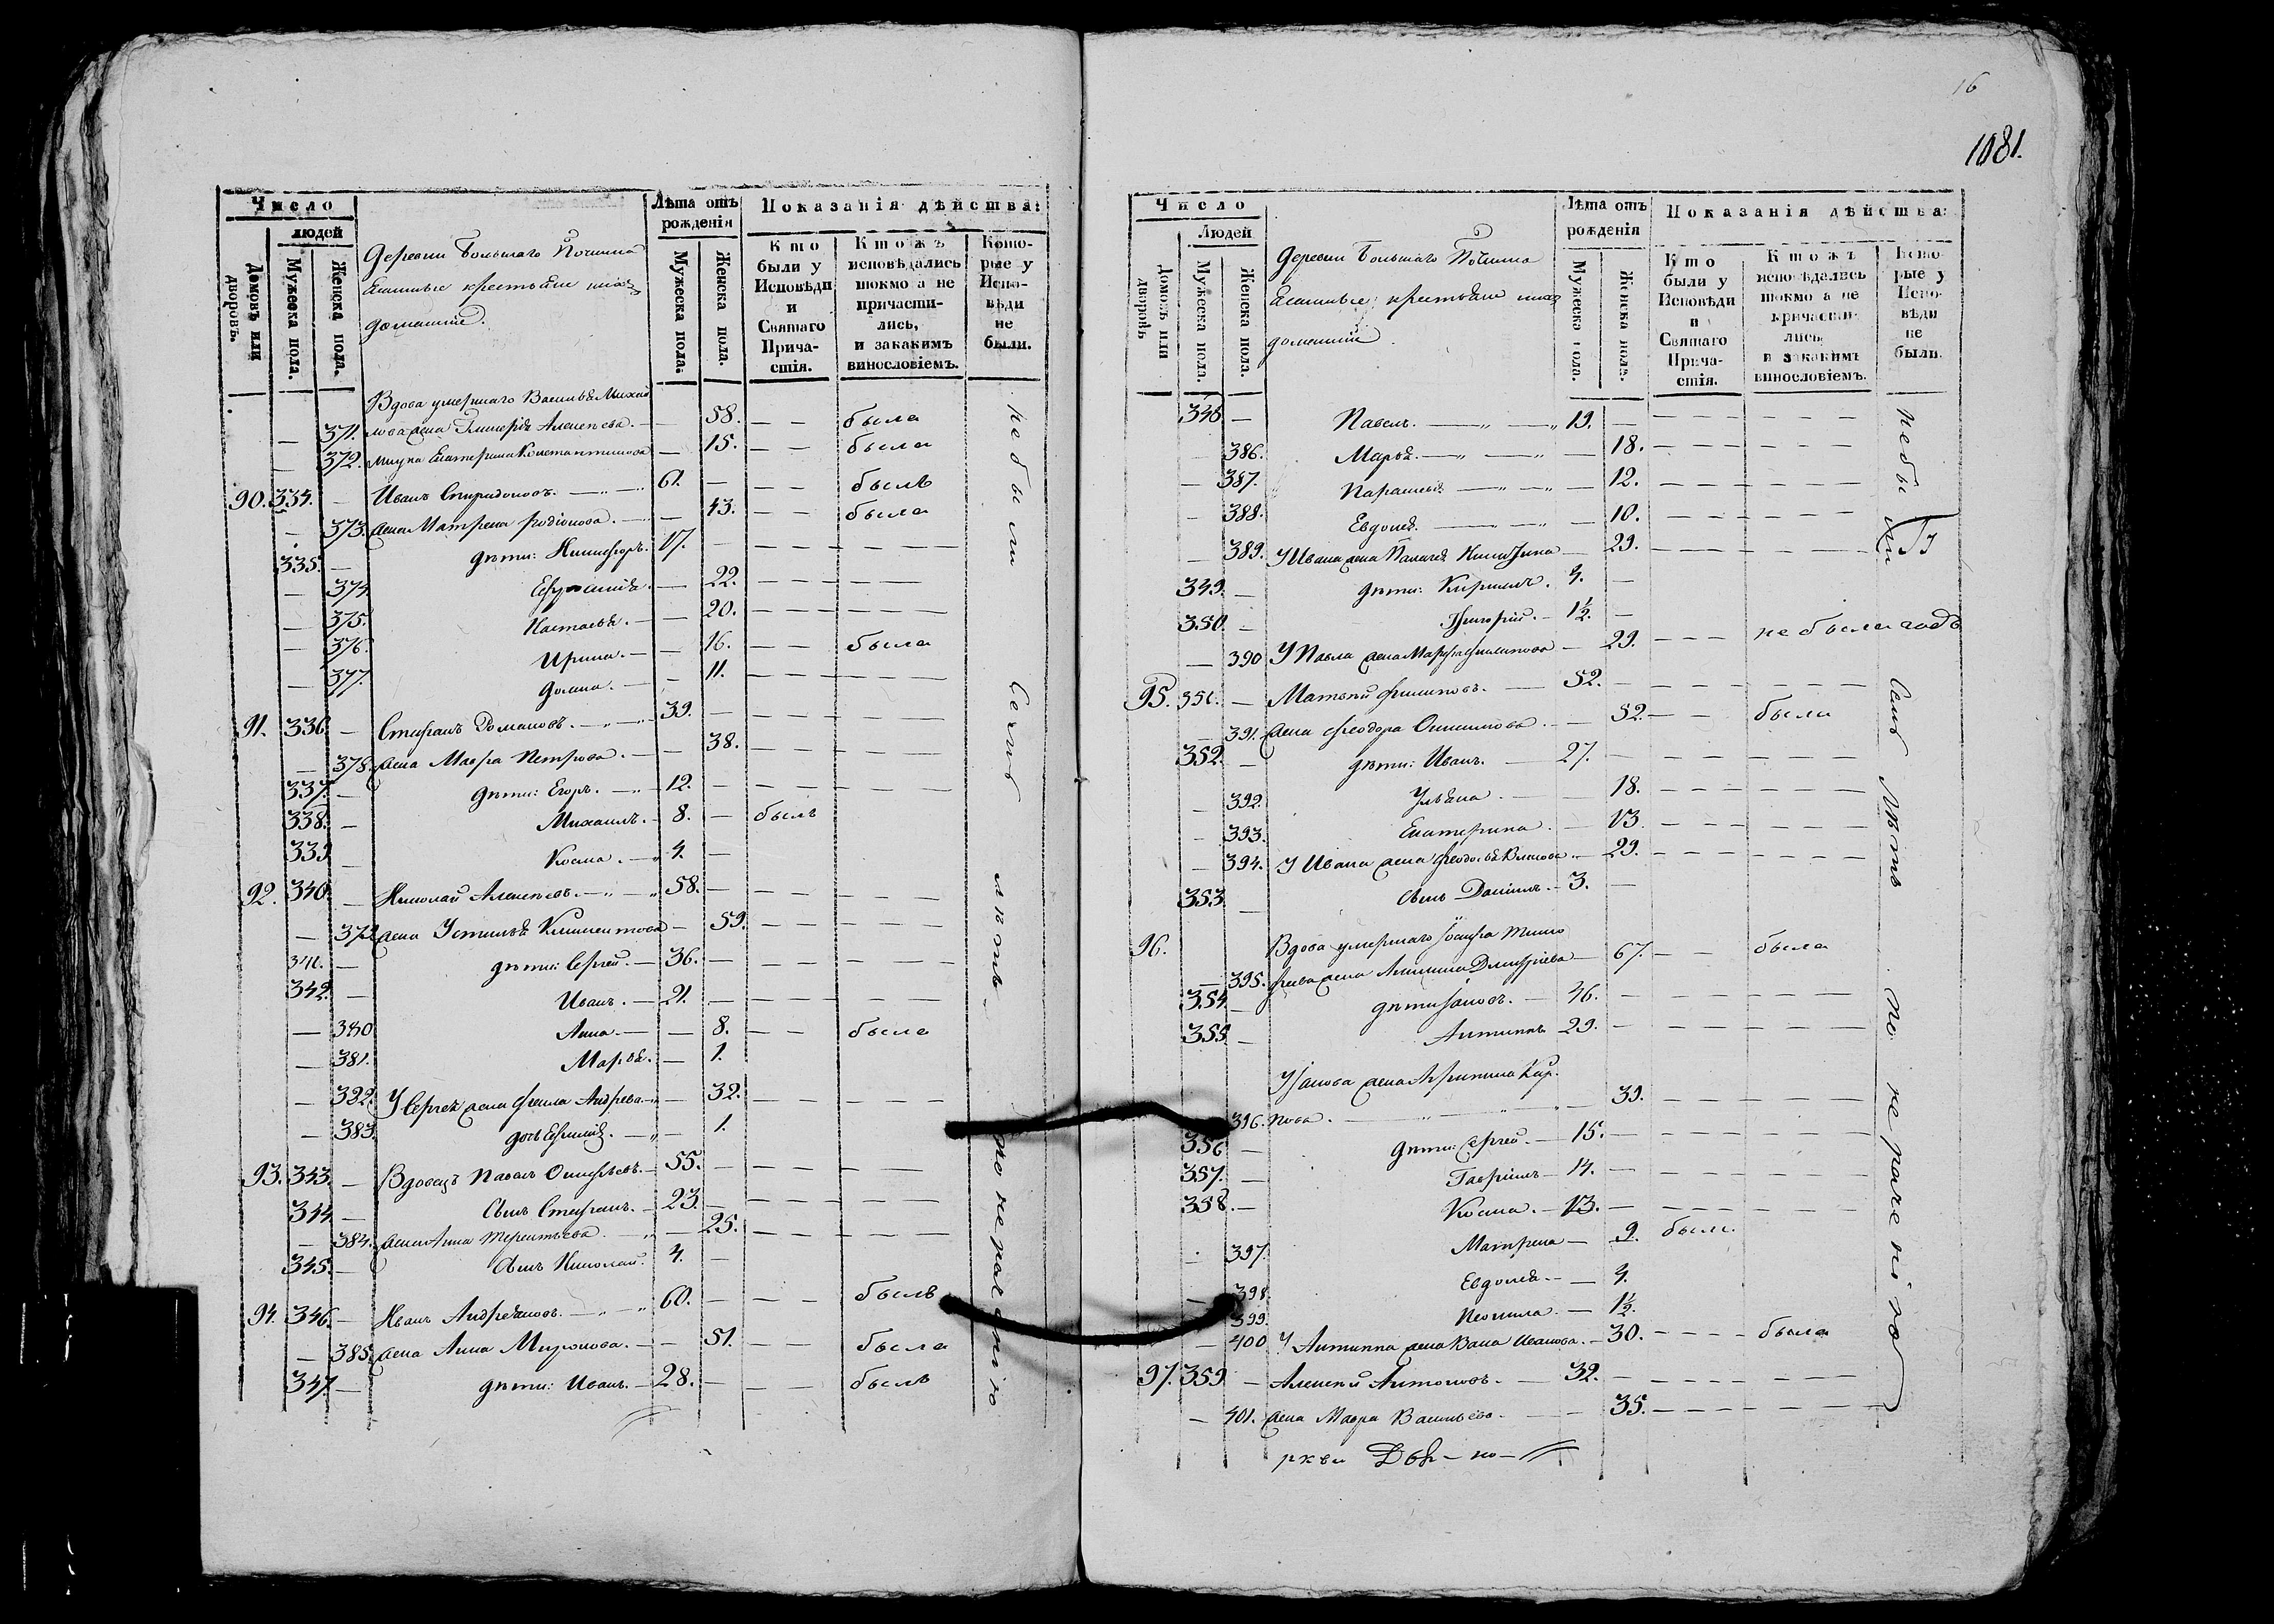 Число
людей
Домовъ или дворовъ.
Мужеска пола.
Женска пола.
Деревни Большаго Починка
крестьяне
домашніе.
Лѣта отъ рожденія
Мужеска пола.
Женска пола.
Показанія дѣйства:
Кто были у Исповѣди и Святаго Причастія.
Ктожъ исповѣдались токмо а не причастились, и закакимъ винословіемъ.
Которые у Исповѣди не были.
Вдова умершаго Василья Михай
371. лова жена Гликерія Алексѣева. — 58. — — была
372. внука Екатерина Константинова — 15. — — была
90. 334. — Иванъ Спиридоновъ. — 61. — — — былъ
— 373. жена Матрена Родіонова. — 43. — — была
335. — дѣти: Никифоръ. 17. —
— 374. 22.
— 375. Настасья. — 20.
— 376. Ирина. — 16. — — была
— 377. Домна. — 11.
91. 336. — Стефанъ Романовъ. — 39. —
— 378. жена Мавра Петрова. — 38.
337. — дѣти: Егоръ. — 12. —
338. — Михаилъ. — 8. — былъ
339. — Косма. — 4. —
92. 340. — Николай Алексѣевъ. — 58. —
— 379. жена Устинья Климентова — 59.
341. — дѣти: Сергей. — 36. —
342. — Иванъ. — 21. —
— 380. Анна. — 8. — — была
— 381. Марья. — 1.
— 382. У Сергея жена Фекла Андреева — 32.
— 383. дочь — 1.
93. 343. — Вдовецъ Павелъ 55. —
344. — сынъ Стефанъ. — 23. —
— 384. жена Анна Терентьева. — 25.
345. — сынъ Николай. 4. —
94. 346. — Иванъ Андреяновъ. — 60. — — — былъ
— 385. жена Анна Миронова. — 51. — — была
347. — дѣти: Иванъ. — 28. — — — былъ
не были
Семь
лѣтъ
по нераченію
16
1081.
Число
Людей
Домовъ или дворовъ
Мужеска пола.
Женска пола.
Деревни Большаго Починка
крестьяне
домашніе.
Лѣта отъ рожденія
Мужеска пола.
Женска пола.
Показанія дѣйства:
Кто были у Исповѣди и Святаго Причастія.
Ктожъ исповѣдались токмо а не причастились, и закакимъ винословіемъ.
Которые у Исповѣди не были.
348. — Павелъ. — 19. —
386. Марья. — 18.
— 387. Парасковья — 12.
— 388. Евдокія. — 10.
— 389. У Ивана жена Пелагея Никитина — 29.
349. — дѣти: Кириллъ. 4. —
350. — Григорій. — 1½. —
— 390 У Павла жена Марфа Филипова — 29. — — — не была
95. 351. — Матвѣй Филиповъ. — 52. —
— 391. жена Феодора Онисимова. — 52. — — была
352. — дѣти: Иванъ. — 27. —
— 392. Ульяна. — 18.
— 393. Екатерина. — 13.
— 394. У Ивана жена Феодосья 29.
353. — сынъ Даніилъ. — 3. —
96. Вдова умершаго Іосифа Тимо
— 395. феева жена Акилина Дмитріева — 67. — — была
354. — дѣти: Іаковъ. — 46. —
355. — Антипъ 29. —
У Іакова жена Агрипина Кар
396. пова. — 39.
356 — дѣти: Сергей. — 15. —
357. — Гавріилъ — 14. —
358. — Косма. — 13. —
— 397. Матрена — 9. была
— 398. Евдокія. — 4.
399. Неонила. — 1½.
— 400 У Антипа жена Иванова. — 30. — — — была
97. 359 — Алексѣй Антоновъ. — 32. —
— 401. жена Мавра Васильева. — 35.
не были
Семь
лѣтъ
по нераченію
ркви